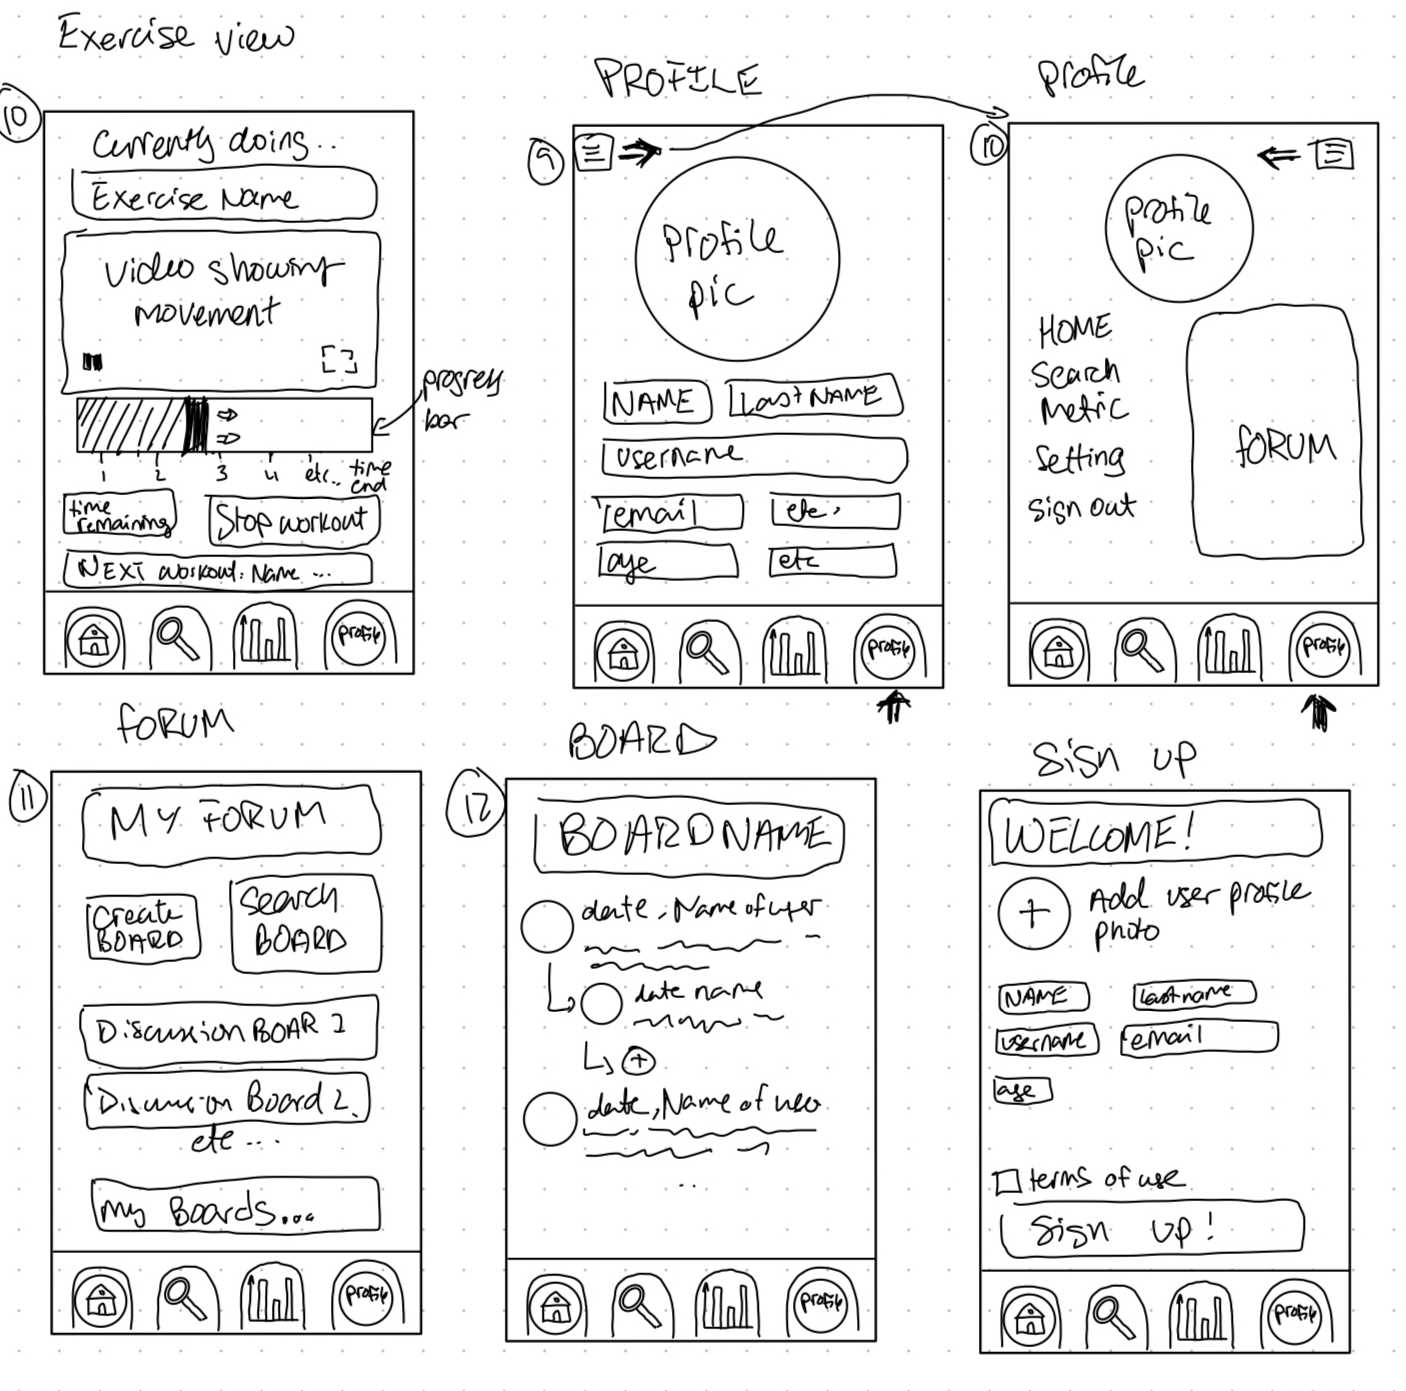 Exercise view
10
Currently doing..
Exercise Name
Video showing
movement
progress
bar
1 2 3 4 etc.. time
end
time
remaining
Stop workout
NEXT workout: Name ...
profile
PROFILE
9
profile
pic
NAME
Last NAME
username
email
etc.
age
etc
profile
profile
10
profile
pic
HOME
Search
Metric
Setting
Sign out
FORUM
profile
FORUM
11
MY FORUM
Create
BOARD
Search
BOARD
Discussion BOAR 1
Discussion Board 2.
etc ...
My Boards...
profile
BOARD
12
BOARDNAME
date, Name of user
date name
+
date, Name of user
..
profile
Sign up
WELCOME!
+
Add user profile
photo
NAME
Lastname
username
email
age
terms of use
Sign up!
profile